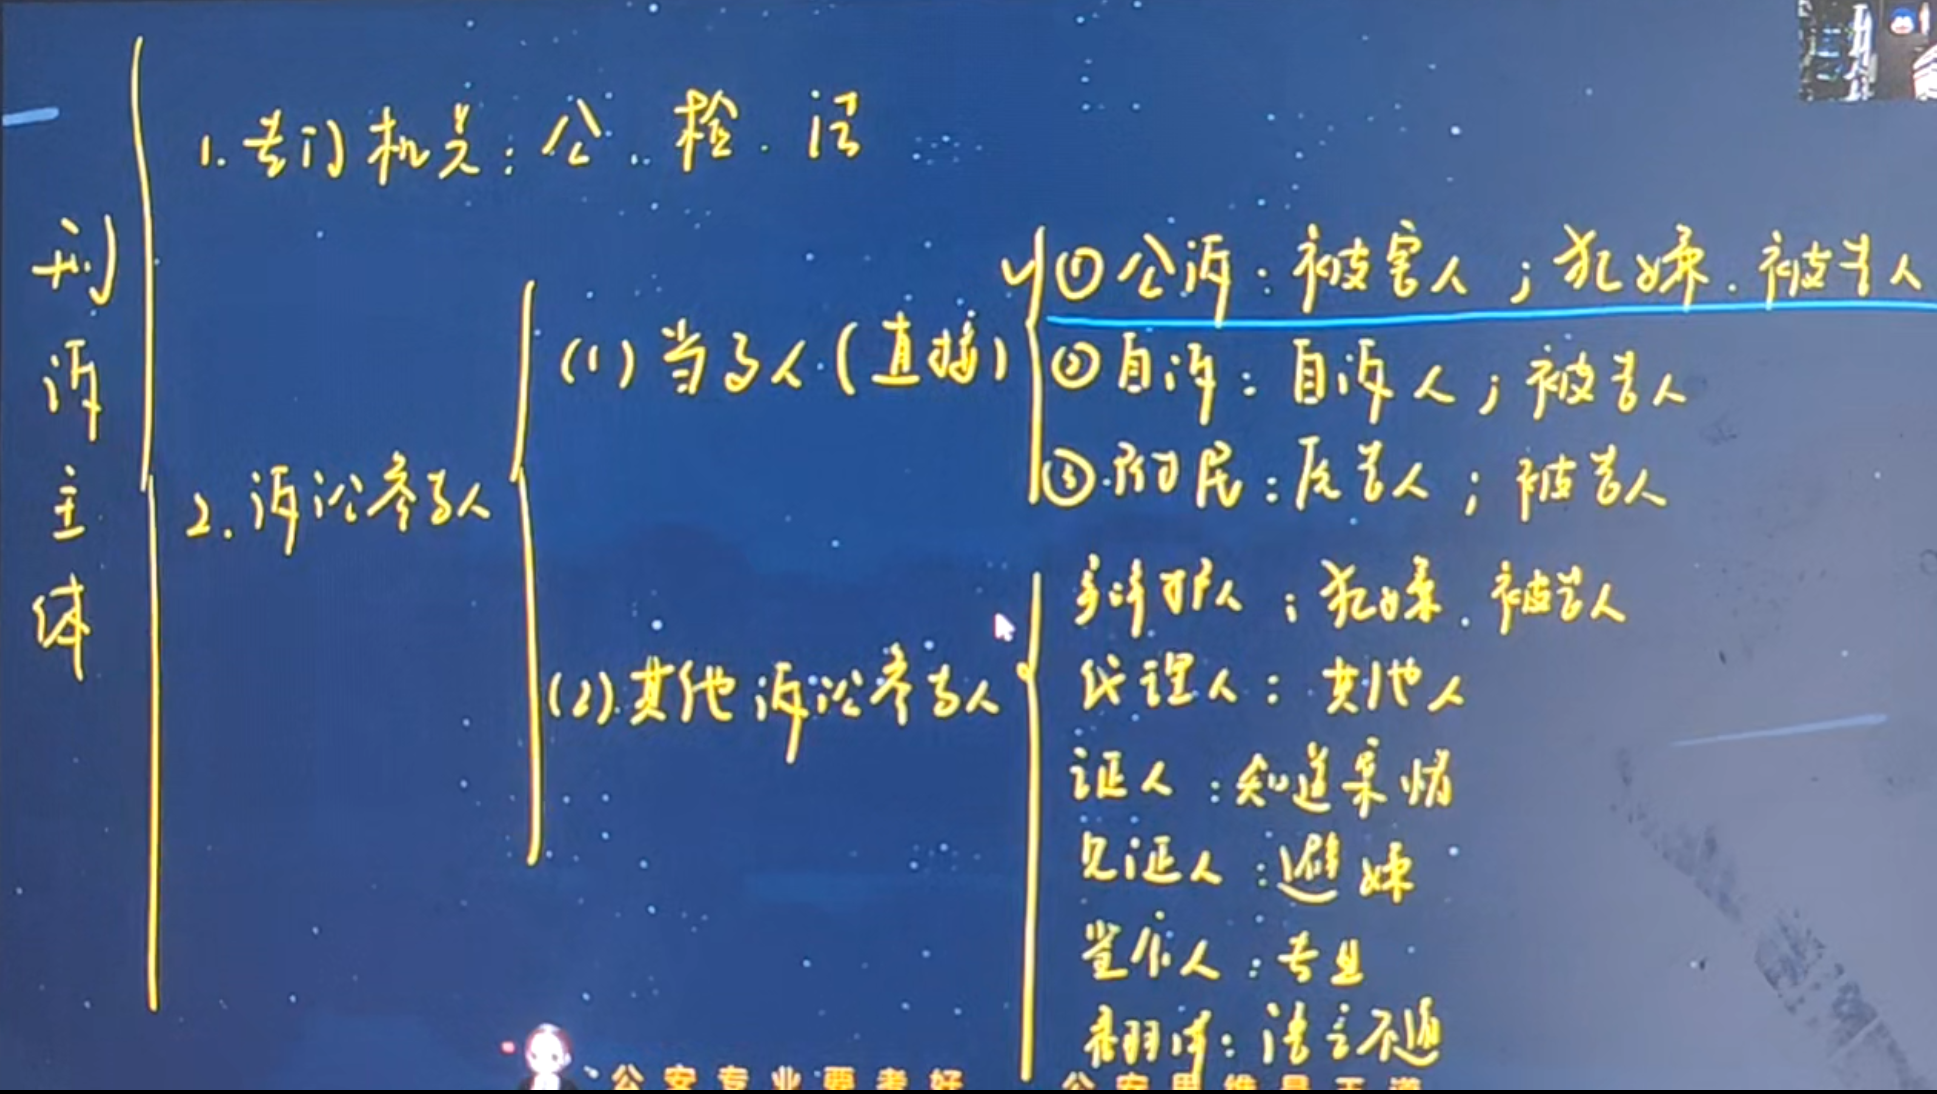 刑诉主体
1.专门机关:公.检.法
2.诉讼参与人
(1)当事人(直接)
①公诉:被害人;犯嫌.被告人
②自诉:自诉人;被告人
③附民:原告人;被告人
(2)其他诉讼参与人
辩护人:犯嫌.被告人
代理人:其他人
证人:知道案情
见证人:避嫌
鉴定人:专业
翻译:语言不通
公安专业要考好 公安思维是王道